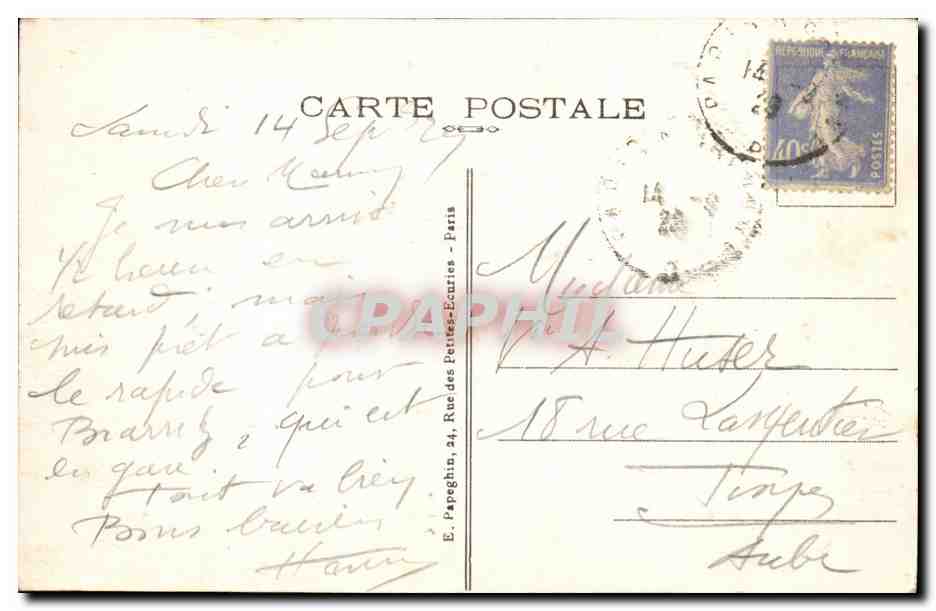 CARTE POSTALE
REPUBLIQUE FRANÇAISE
40c
POSTES
Samedi 14 Sep 29
Cher
Je suis arrivé
1/2 heure en
retard, mais
suis prêt a
le rapide pour
Biarritz, qui est
en gare.
Tout va bien.
Bons baisers
E. Papeghin, 24, Rue des Petites-Ecuries - Paris
CPAPHIL
Madame
Vve A Huser
18 rue Largentier
Troyes
Aube